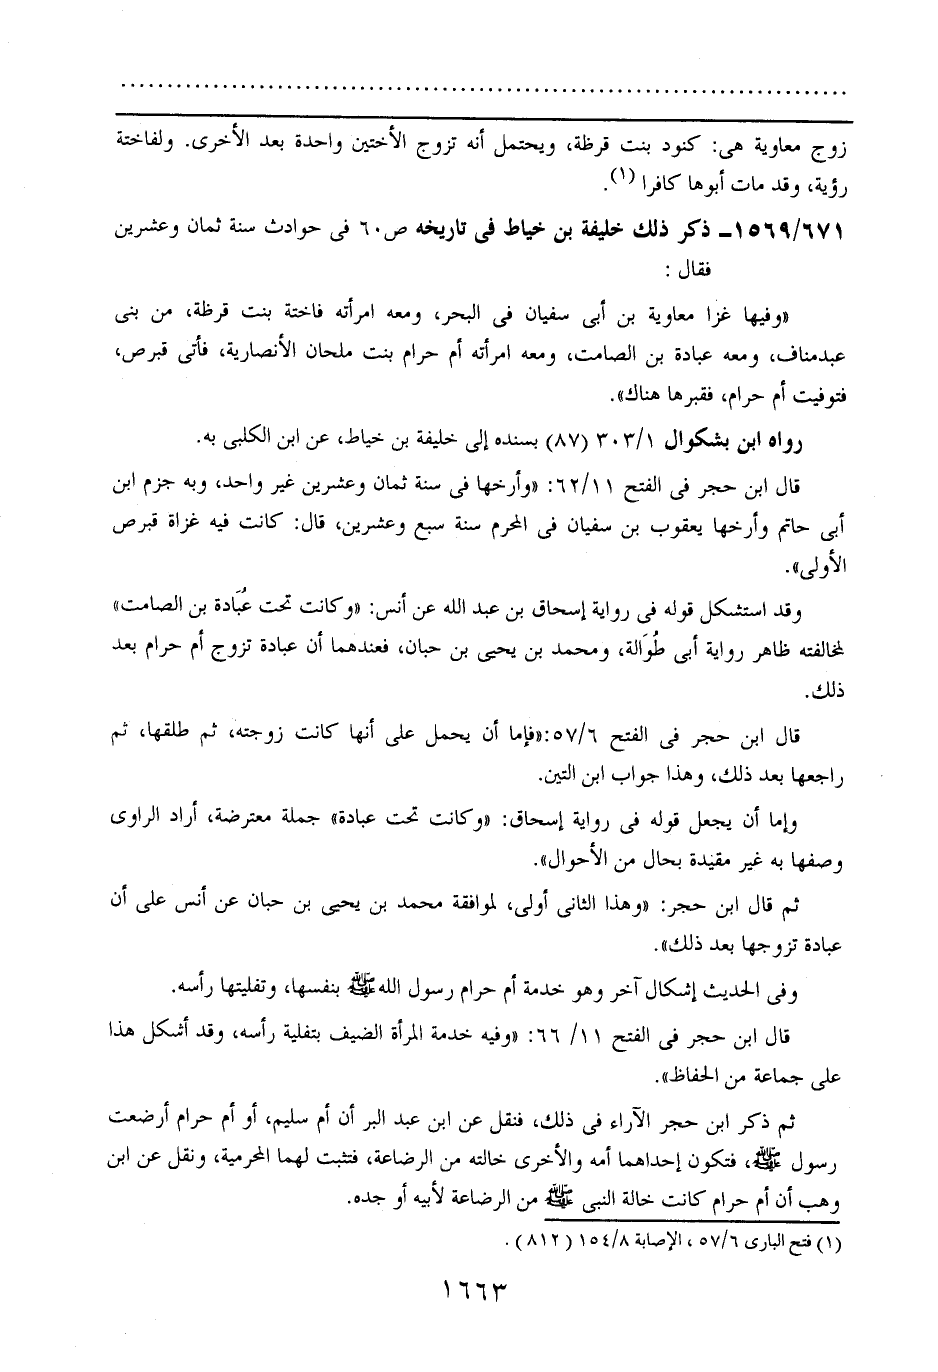 زوج معاوية هى: كنود بنت قرظة، ويحتمل أنه تزوج الأختين واحدة بعد الأخرى. ولفاختة
رؤية، وقد مات أبوها كافرا (١).
١٥٦٩/٦٧١ـ ذكر ذلك خليفة بن خياط فى تاريخه ص٦٠ فى حوادث سنة ثمان وعشرين
فقال :
«وفيها غزا معاوية بن أبى سفيان فى البحر، ومعه امرأته فاختة بنت قرظة، من بنى
عبدمناف، ومعه عبادة بن الصامت، ومعه امرأته أم حرام بنت ملحان الأنصارية، فأتى قبرص،
فتوفيت أم حرام، فقبرها هناك».
رواه ابن بشكوال ٣٠٣/١ (٨٧) بسنده إلى خليفة بن خياط، عن ابن الكلبى به.
قال ابن حجر فى الفتح ٦٢/١١: «وأرخها فى سنة ثمان وعشرين غير واحد، وبه جزم ابن
أبى حاتم وأرخها يعقوب بن سفيان فى المحرم سنة سبع وعشرين، قال: كانت فيه غزاة قبرص
الأولى».
وقد استشكل قوله فى رواية إسحاق بن عبد الله عن أنس: «وكانت تحت عُبَادة بن الصامت»
لمخالفته ظاهر رواية أبى طُوَالة، ومحمد بن يحيى بن حبان، فعندهما أن عبادة تزوج أم حرام بعد
ذلك.
قال ابن حجر فى الفتح ٥٧/٦:«فإما أن يحمل على أنها كانت زوجته، ثم طلقها، ثم
راجعها بعد ذلك، وهذا جواب ابن التين.
وإما أن يجعل قوله فى رواية إسحاق: «وكانت تحت عبادة» جملة معترضة، أراد الراوى
وصفها به غير مقيدة بحال من الأحوال».
ثم قال ابن حجر: «وهذا الثانى أولى، لموافقة محمد بن يحيى بن حبان عن أنس على أن
عبادة تزوجها بعد ذلك».
وفى الحديث إشكال آخر وهو خدمة أم حرام رسول الله ﷺ بنفسها، وتفليتها رأسه.
قال ابن حجر فى الفتح ١١/ ٦٦: «وفيه خدمة المرأة الضيف بتفلية رأسه، وقد أشكل هذا
على جماعة من الحفاظ».
ثم ذكر ابن حجر الآراء فى ذلك، فنقل عن ابن عبد البر أن أم سليم، أو أم حرام أرضعت
رسول ﷺ، فتكون إحداهما أمه والأخرى خالته من الرضاعة، فتثبت لهما المحرمية، ونقل عن ابن
وهب أن أم حرام كانت خالة النبى ﷺ من الرضاعة لأبيه أو جده.
(١) فتح البارى ٥٧/٦ ، الإصابة ١٥٤/٨ (٨١٢) .
١٦٦٣